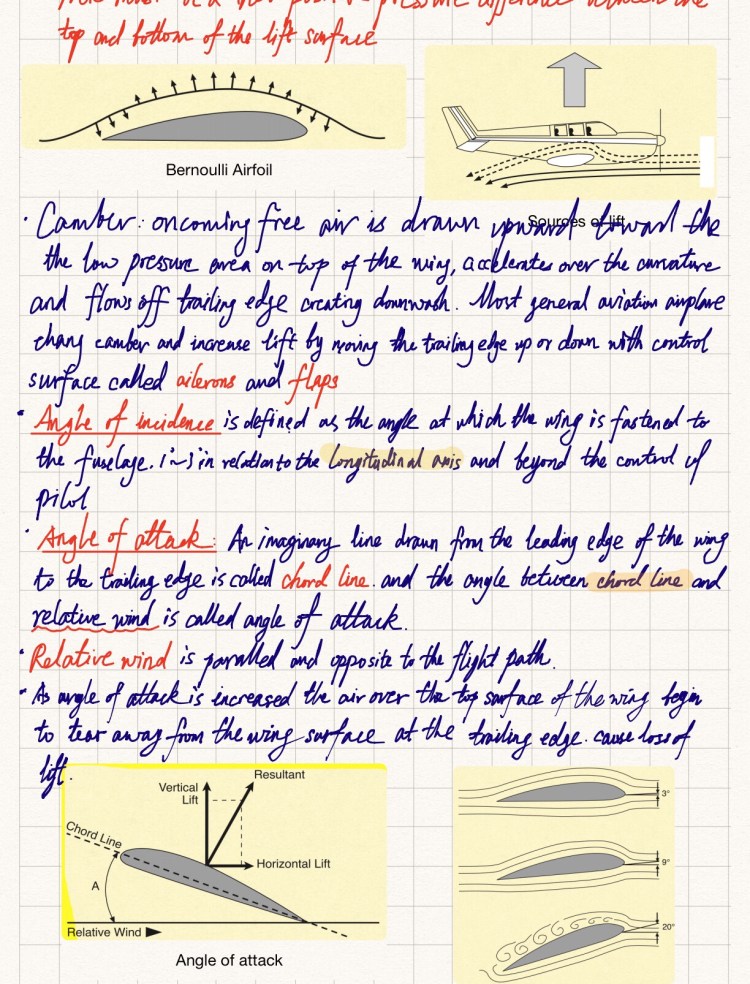 pressure difference between the
top and bottom of the lift surface
Bernoulli Airfoil
Sources of lift
· Camber: oncoming free air is drawn upward toward the
the low pressure area on top of the wing, accelerates over the curvature
and flows off trailing edge creating downwash. Most general aviation airplane
chang camber and increase lift by moving the trailing edge up or down with control
surface called ailerons and flaps
· Angle of incidence is defined as the angle at which the wing is fastened to
the fuselage. in relation to the longitudinal axis and beyond the control of
pilot
· Angle of attack: An imaginary line drawn from the leading edge of the wing
to the trailing edge is called chord line. and the angle between chord line and
relative wind is called angle of attack.
· Relative wind is paralled and opposite to the flight path.
· As angle of attack is increased the air over the top surface of the wing begin
to tear away from the wing surface at the trailing edge. cause loss of
lift.
Resultant
Vertical
Lift
Chord Line
Horizontal Lift
A
Relative Wind
Angle of attack
3°
9°
20°